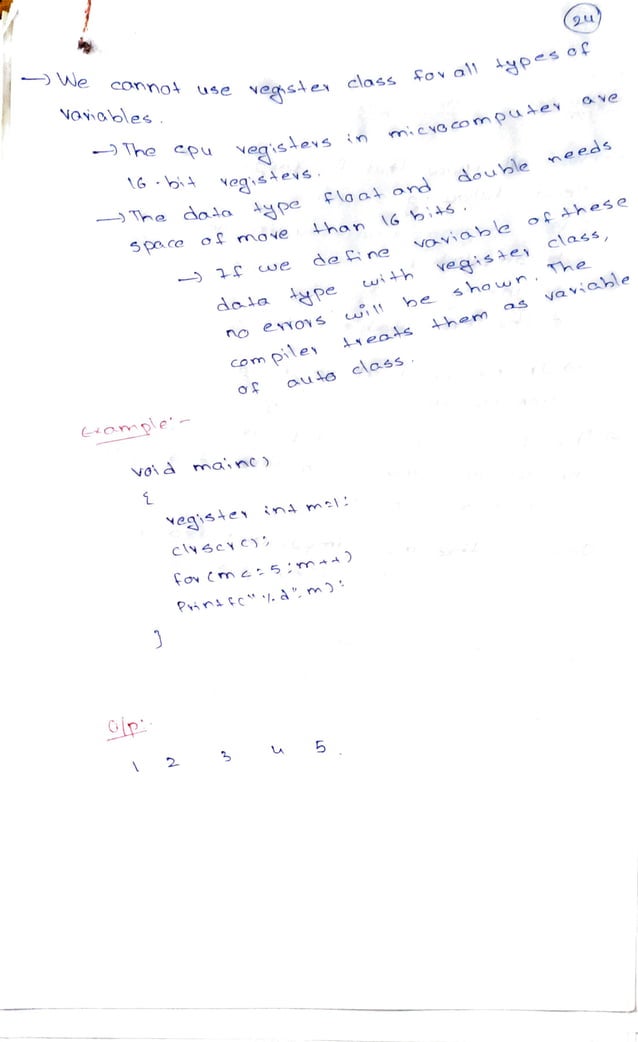 24
→ We cannot use register class for all types of
variables.
→ The cpu registers in microcomputer are
16-bit registers.
→ The data type float and double needs
space of more than 16 bits.
→ If we define variable of these
data type with register class,
no errors will be shown. The
compiler treats them as variable
of auto class.
Example:-
void main()
{
register int m=1;
clrscr();
for (m<=5;m++)
Printf("%d",m);
}
O/p:-
1 2 3 4 5.